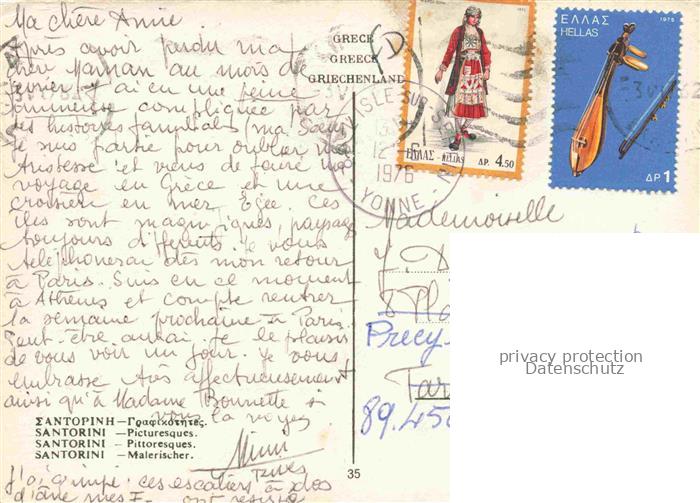 Ma chère Annie
Après avoir perdu ma
chère Maman au mois de
février j'ai eu une peine
immense compliquée par
des histoires familiales (ma Sœur)
Je suis partie pour oublier ma
tristesse et viens de faire un
voyage en Grèce et une
croisière en mer Egée. Ces
îles sont magnifiques, paysages
toujours différents. Je vous
téléphonerai dès mon retour
à Paris. Suis en ce moment
à Athènes et compte rentrer
la semaine prochaine à Paris
Peut-être aurai-je le plaisir
de vous voir un jour. Je vous
embrasse très affectueusement
ainsi qu'à Madame si
vous la voyez
ΣΑΝΤΟΡΙΝΗ —Γραφικότητες.
SANTORINI —Picturesques.
SANTORINI —Pittoresques.
SANTORINI —Malerischer.
J'ai grimpé ces escaliers à dos
d'âne mes ont résisté
35
GRECE
GREECE
GRIECHENLAND
D
ΕΛΛΑΣ - HELLAS ΔΡ. 4.50
ΕΛΛΑΣ 1975
HELLAS
ΔΡ. 1
ISLE-SUR-SEREIN
12
1976
YONNE
Mademoiselle
D
8 Pla
Precy
Tar
89.450
privacy protection
Datenschutz